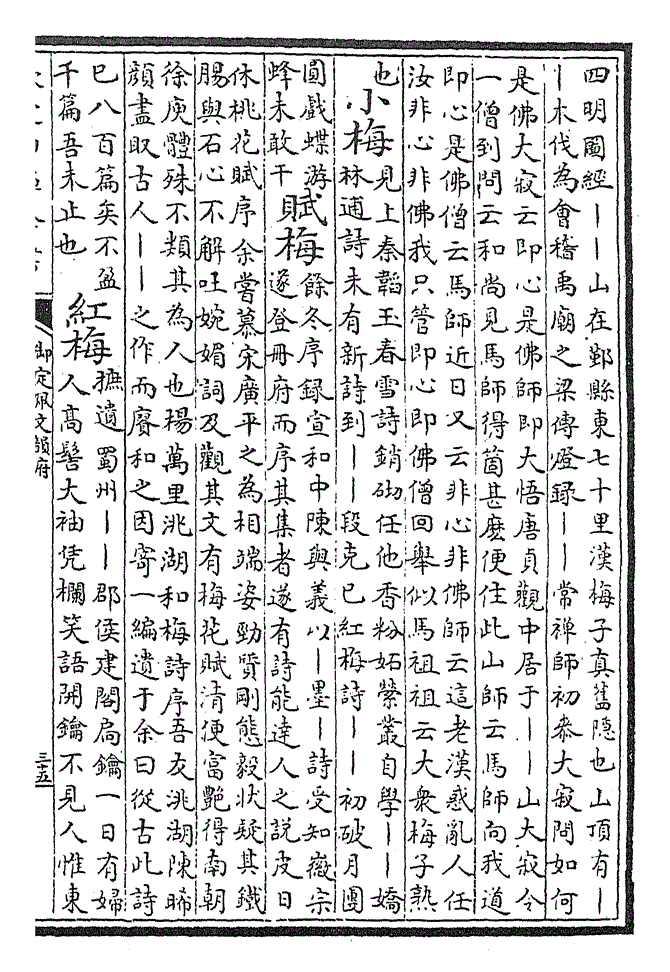 四明圖經丨丨山在鄞縣東七十里漢梅子真舊隱也山頂有丨
丨木伐為會稽禹廟之梁傳燈錄丨丨常禅師初叅大寂問如何
是佛大寂云即心是佛師即大悟唐貞觀中居于丨丨山大寂令
一僧到問云和尚見馬師得箇甚麽便住此山師云馬師向我道
即心是佛僧云馬師近日又云非心非佛師云這老漢惑亂人任
汝非心非佛我只管即心即佛僧回舉似馬祖祖云大衆梅子熟
也
小梅
見上秦韜玉春雪詩銷砌任他香粉妬縈叢自學丨丨嬌
林逋詩未有新詩到丨丨段克已紅梅詩丨丨初破月團
圓戲蝶游
蜂未敢干
賦梅
餘冬序録宣和中陳與義以丨墨丨詩受知徽宗
遂登冊府而序其集者遂有詩能達人之説皮日
休桃花賦序余嘗慕宋廣平之為相端姿勁質剛態毅狀疑其鐵
腸與石心不解吐婉媚詞及觀其文有梅花賦清便富艷得南朝
徐庾體殊不類其為人也楊萬里洮湖和梅詩序吾友洮湖陳晞
顔盡取古人丨丨之作而賡和之因寄一編遺于余曰從古此詩
巳八百篇矣不盈
千篇吾未止也
紅梅
摭遺蜀州丨丨郡侯建閣扃鑰一日有婦
人高髻大袖凭欄笑語開鑰不見人惟東
御定佩文韻府
三五